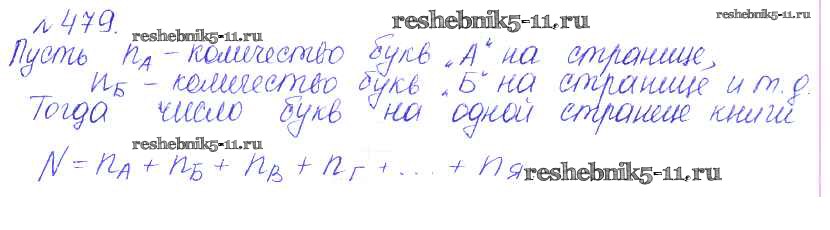 №479. reshebnik5-11.ru reshebnik5-11.ru reshebnik5-11.ru
Пусть nА – количество букв „А“ на странице,
nБ – количество букв „Б“ на странице и т.д.
Тогда число букв на одной странице книги
reshebnik5-11.ru
N = nА + nБ + nВ + nГ + ... + nЯ reshebnik5-11.ru